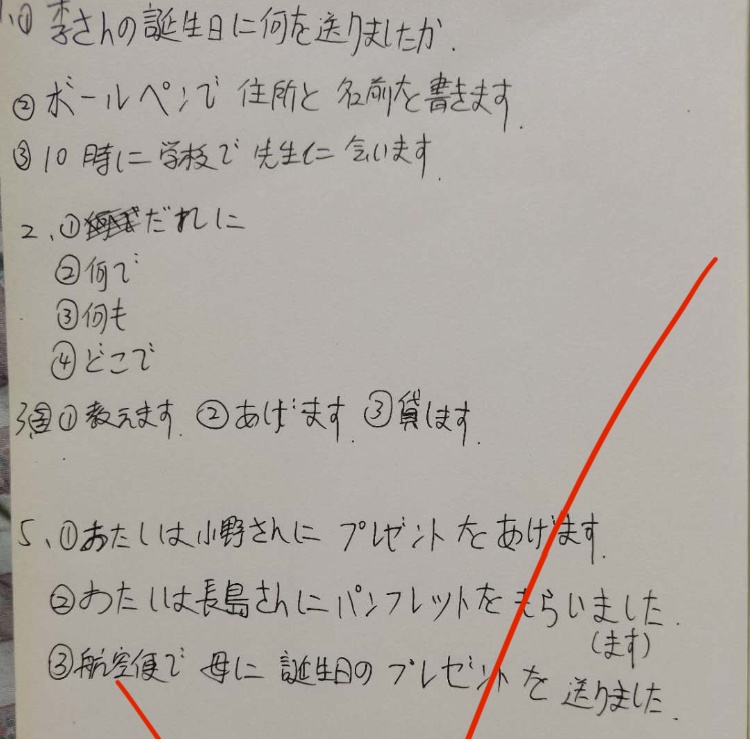 1.① 李さんの誕生日に何を送りましたか.
② ボールペンで 住所と 名前を書きます.
③ 10時に学校で 先生に 会います.
2、①だれに
②何で
③何も
④どこで
3 ①教えます. ②あげます. ③貸します.
5、①わたしは小野さんに プレゼントをあげます.
②わたしは長島さんにパンフレットをもらいました.
(ます)
③航空便で 母に 誕生日の プレゼントを 送りました.